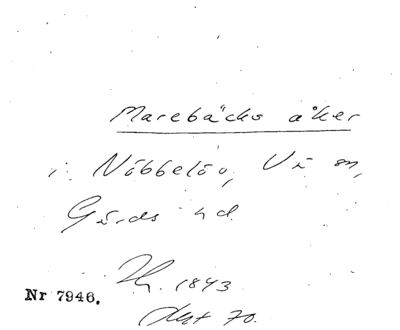 Marebäcks åker
i Nöbbelöv, Vä sn,
Gärds hd.
1843
Nr 7946.
70.